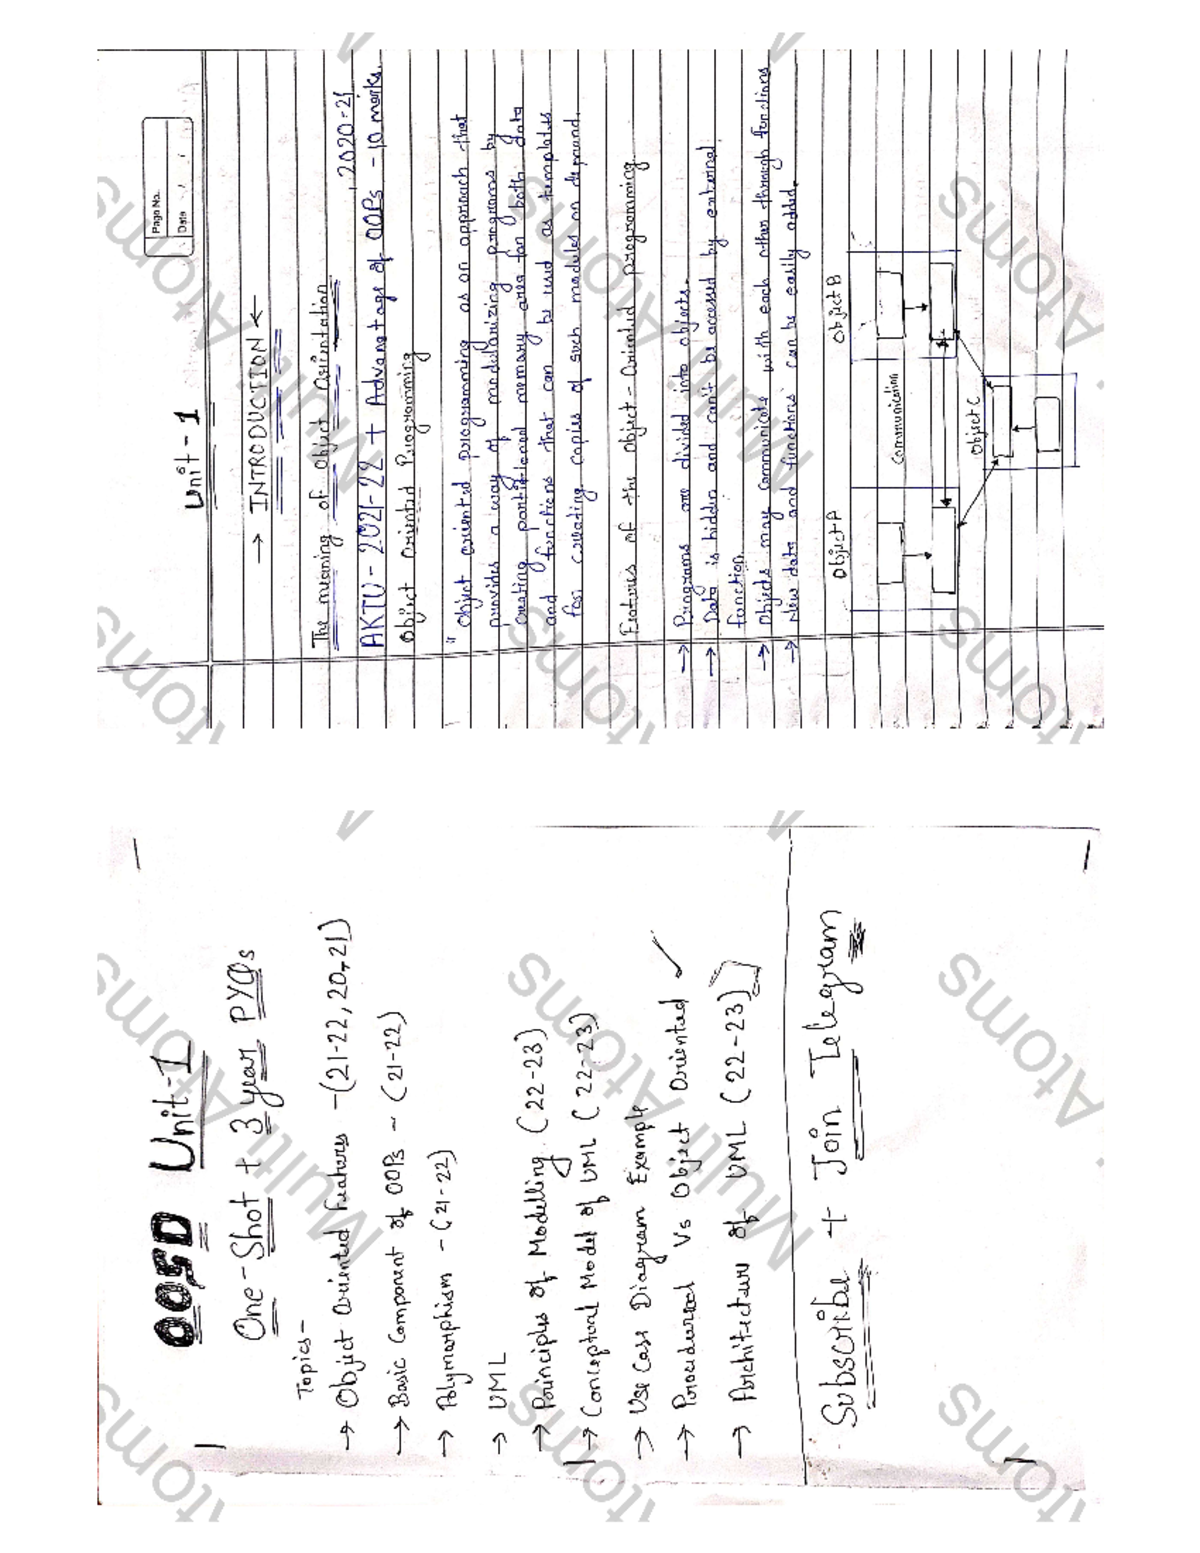 OOSD Unit-1
One-Shot + 3 year PYQs
Topics-
→ Object Oriented Features -(21-22, 20-21)
→ Basic Component of OOPs - (21-22)
→ Polymorphism - (21-22)
→ UML
→ Principles of Modelling (22-23)
→ Conceptual Model of UML (22-23)
→ Use Case Diagram Example
→ Procedural Vs Object Oriented ✓
→ Architecture of UML (22-23)
Subscribe + Join Telegram
Multi Atoms
Page No.
Date
Unit-1
→ INTRODUCTION ←
The meaning of Object Orientation
, 2020-21
AKTU - 2021-22 + Advantage of OOPs - 10 marks.
Object Oriented Programming
"Object oriented programming as an approach that
provides a way of modularizing programs by
creating partitioned memory area for both data
and functions that can be used as templates
for creating copies of such modules on demand.
Features of the Object-Oriented programming
→ Programs are divided into objects.
→ Data is hidden and can't be accessed by external
function.
→ Objects may communicate with each other through functions
→ New data and functions can be easily added.
Object A
Object B
Communication
Object C
Multi Atoms